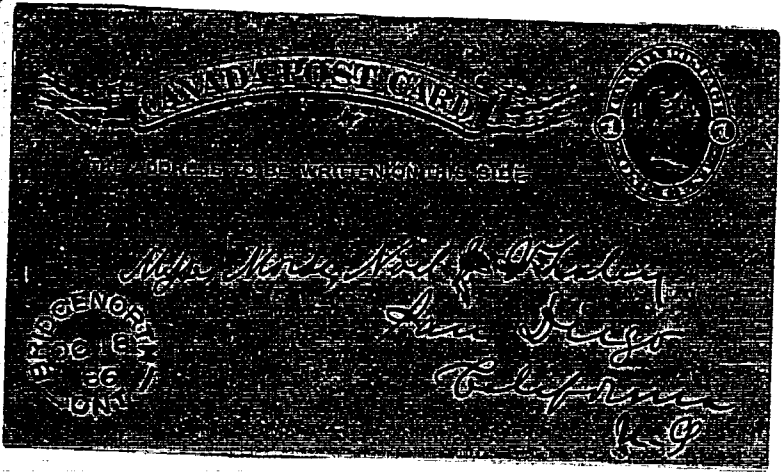 CANADA POST CARD
CANADA POSTAGE
1 1
ONE CENT
THE ADDRESS TO BE WRITTEN ON THIS SIDE
San Diego
California
BRIDGENORTH
OC 18
86
ONT